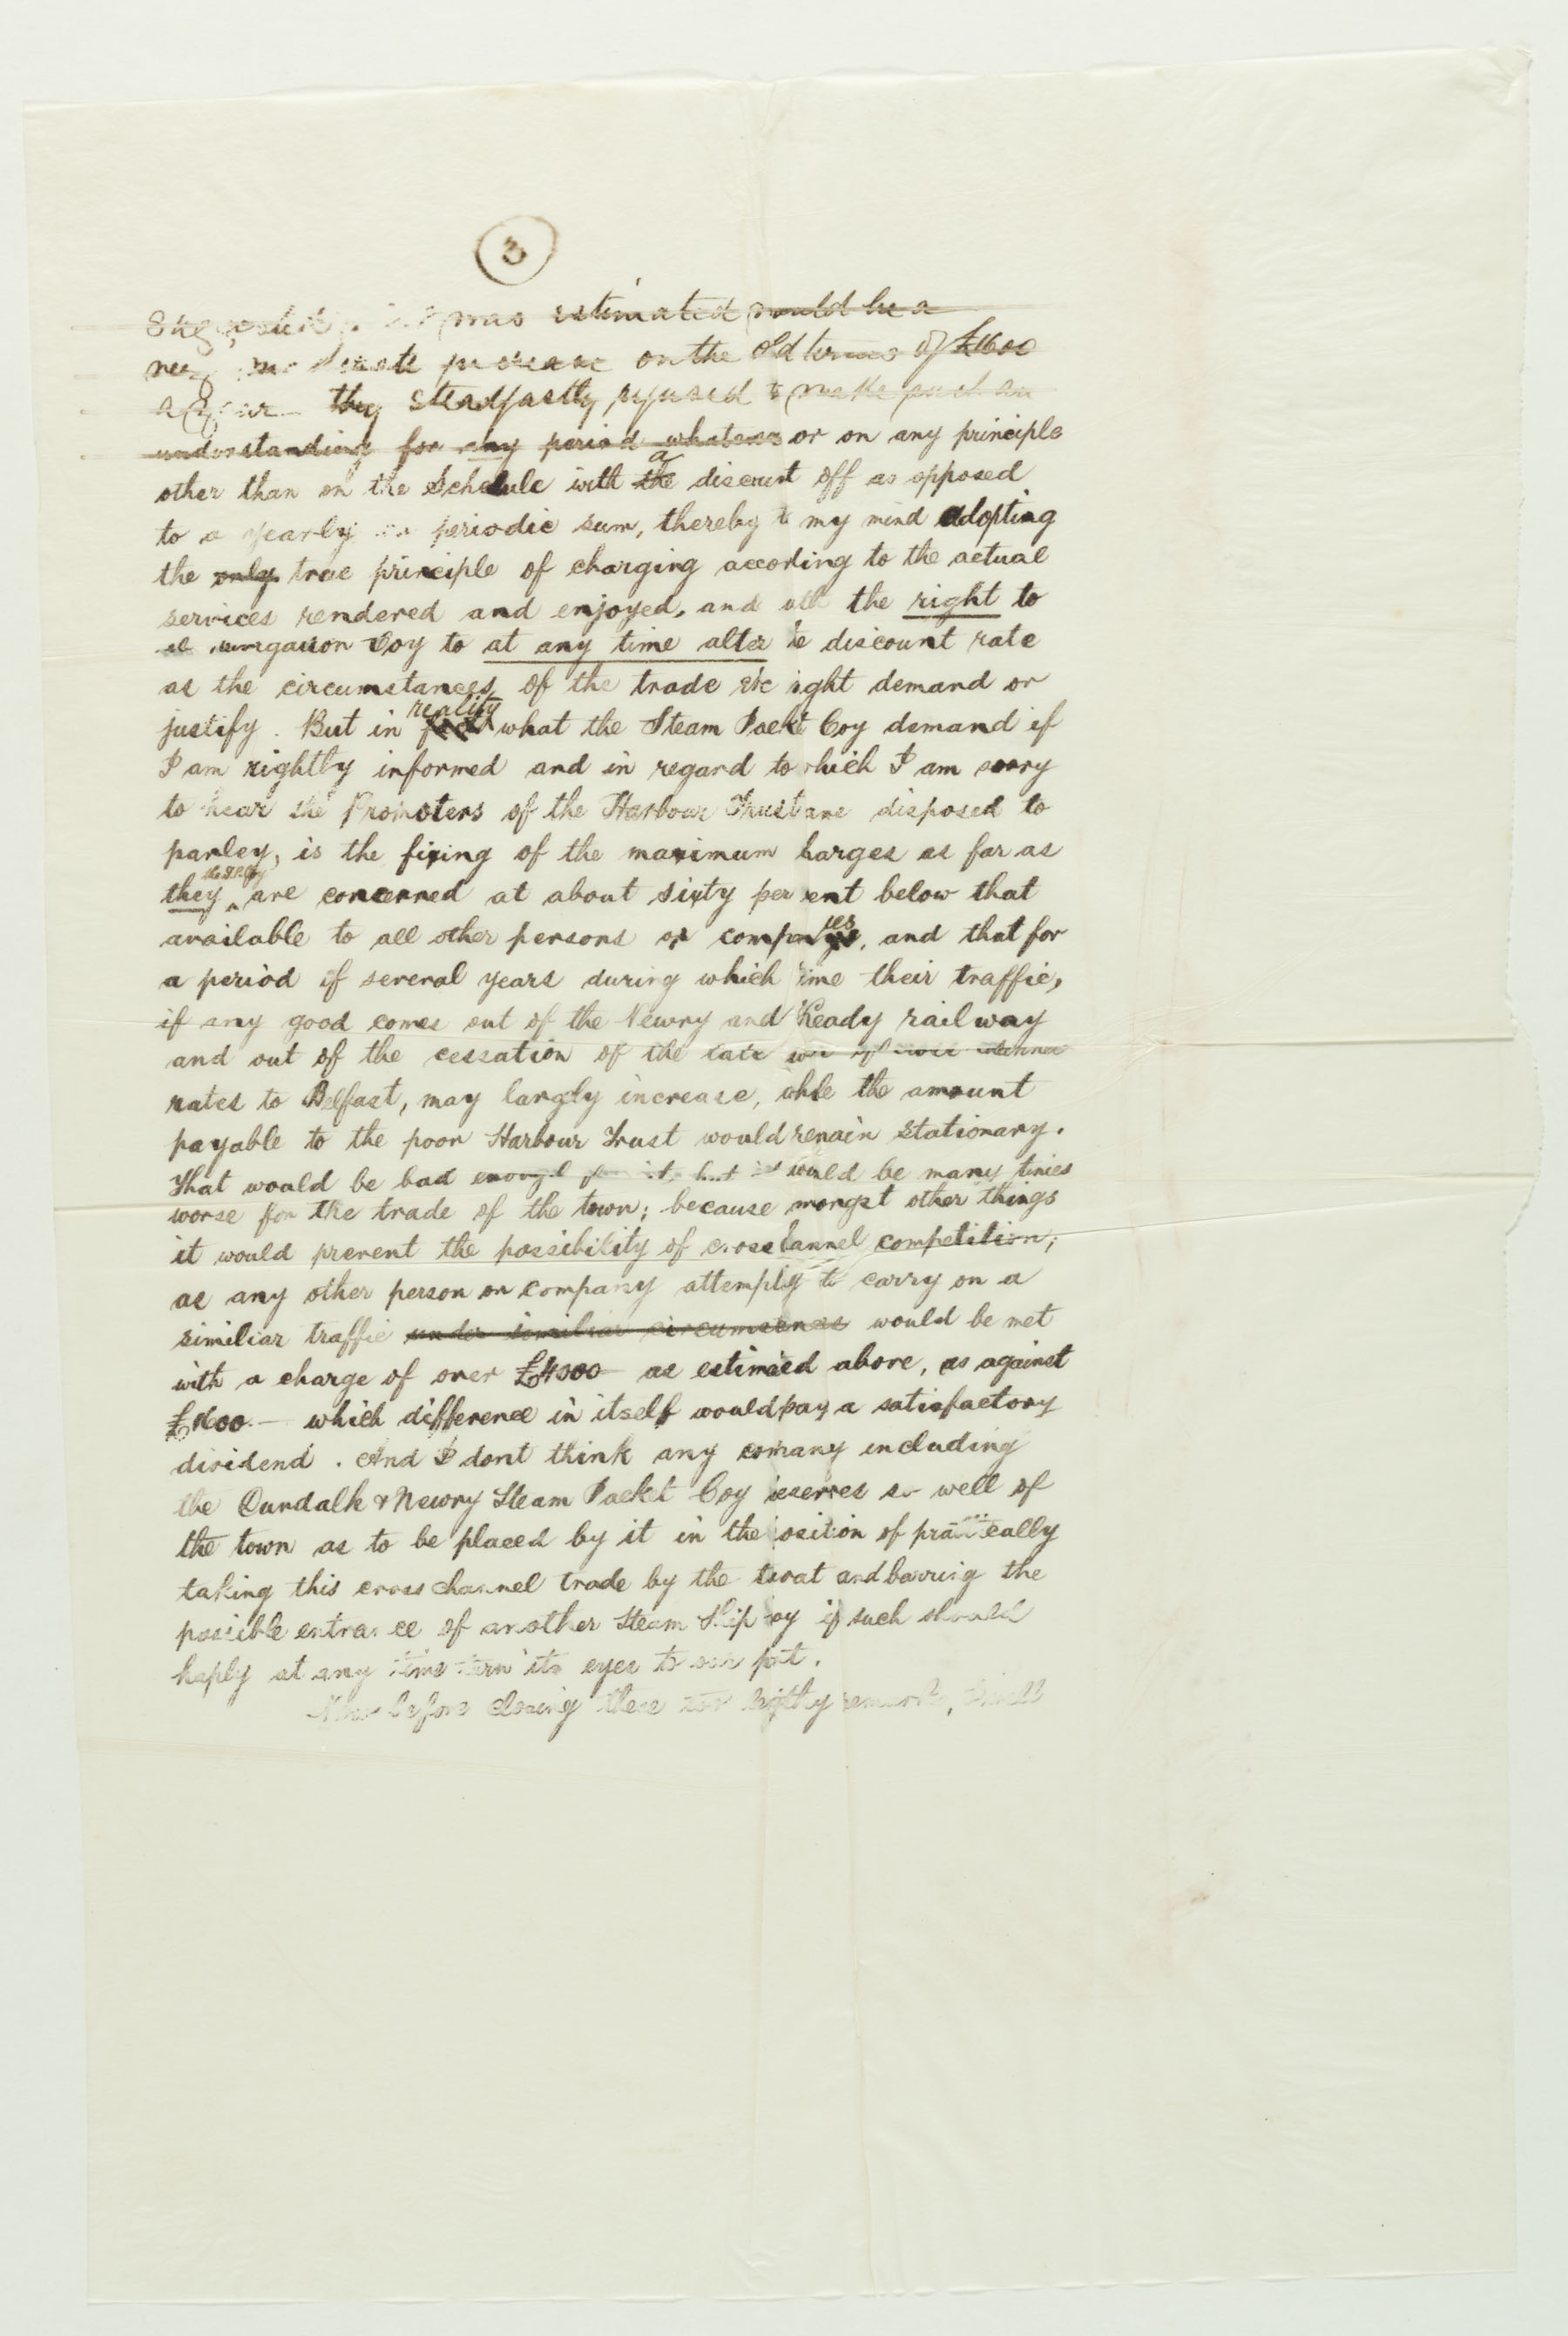 3
was estimated would be a
moderate increase on the old terms of £1600
a year they steadfastly refused to make such an
understanding for any period whatever or on any principle
other than on the Schedule with the a discount off as opposed
to a yearly or periodic sum, thereby to my mind adopting
the only true principle of charging according to the actual
services rendered and enjoyed, and the right to
Coy to at any time alter te discount rate
as the circumstances of the trade etc ight demand or
justify. But in fact reality what the Steam Packt Coy demand if
I am rightly informed and in regard to which I am sorry
to hear the Promoters of the Harbour Trust are disposed to
parley, is the fixing of the maximum harges as far as
they the S.P. Coy are concerned at about sixty per ent below that
available to all other persons or companies, and that for
a period of several years during which time their traffic,
if any good comes out of the Newry and Keady railway
and out of the cessation of the late
rates to Belfast, may largly increase, while the amount
payable to the poor Harbour Trust would remain stationary.
That would be bad enough for it, but would be many times
worse for the trade of the town; because mongst other things
it would prevent the possibility of cross hannel competition;
as any other person or company attemptig to carry on a
similiar traffic under similiar circumstences would be met
with a charge of over £4000 as estimaed above, as against
£1600 — which difference in itself would pay a satisfactory
dividend. And I dont think any comany including
the Dundalk & Newry Steam Packet Coy eserves so well of
the town as to be placed by it in the osition of practically
taking this cross channel trade by the troat and barring the
possible entrance of another Steam Ship oy if such should
haply at any time turn its eyes to our port.
Now before closing these too legthy remarks, I will